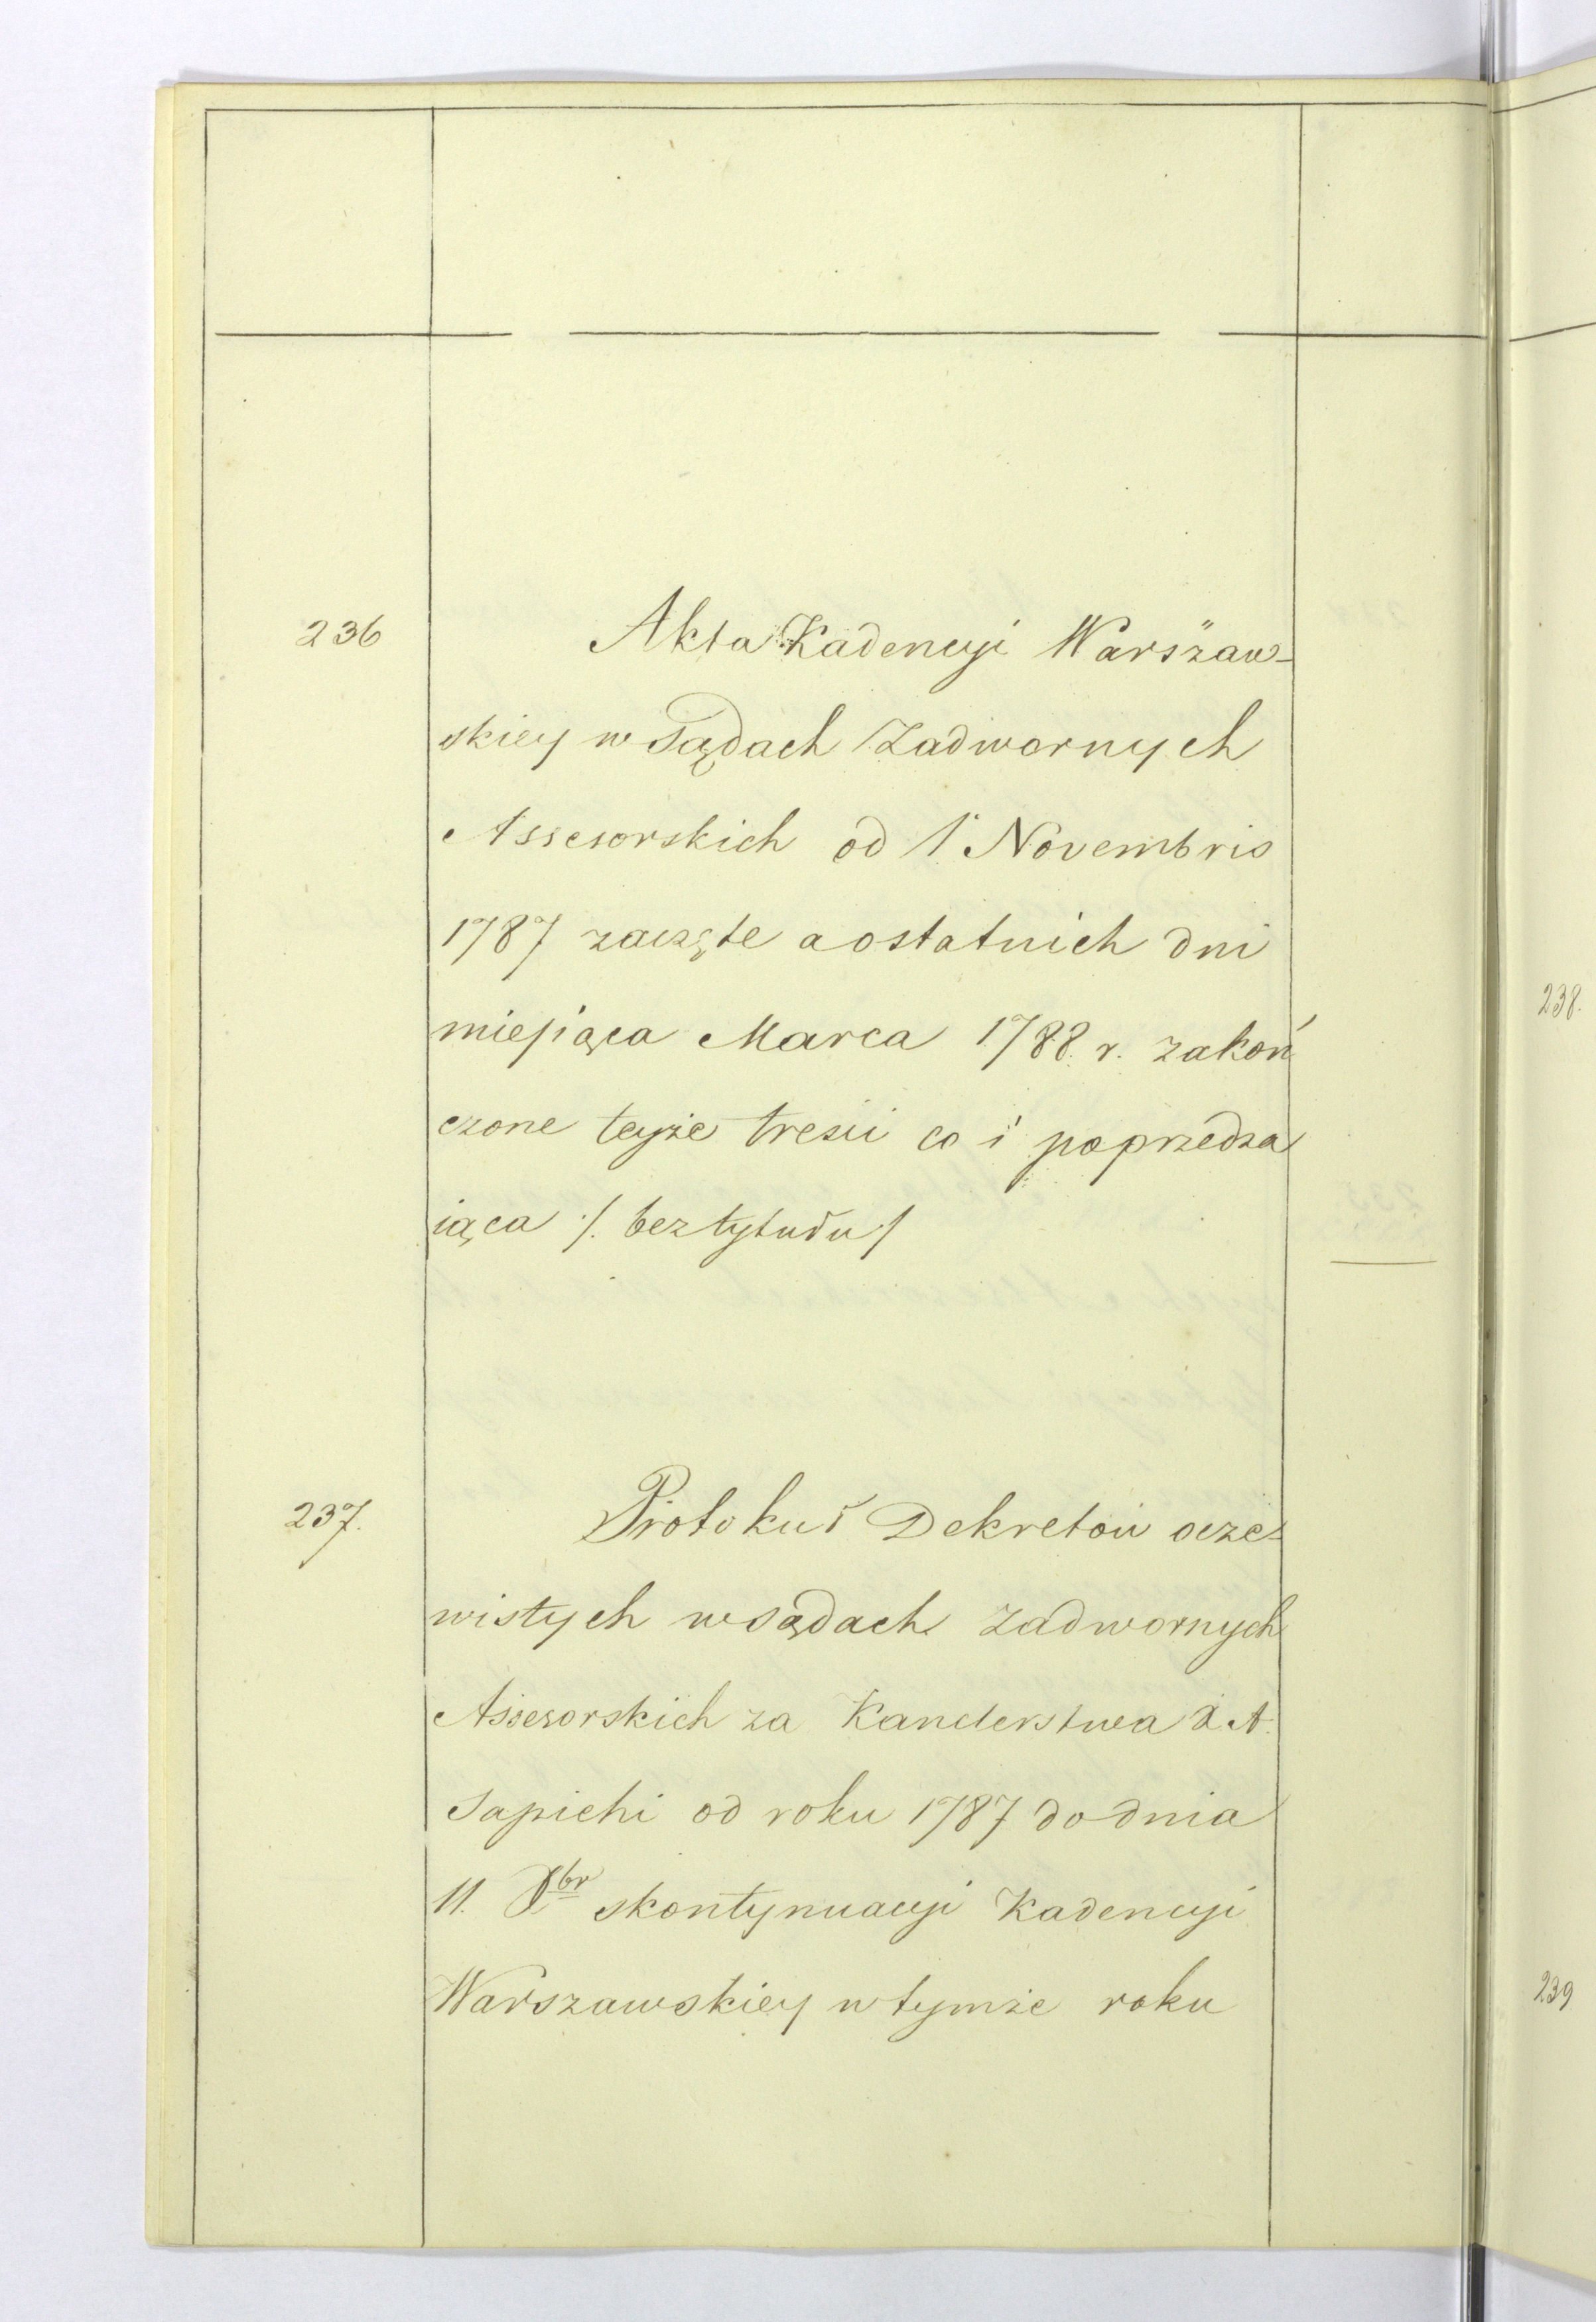 236
Akta Kadencyi Warszaw-
skiey w Sądach Zadwornych
Assesorskich od 1 Novembris
1787 zaczęte a ostatnich dni
miesiąca Marca 1788. r. zakoń
czone teyże treści co i poprzedza
iąca /. bez tytułu/
237.
Protokuł Dekretów ocze-
wistych w sądach Zadwornych
Assesorskich za Kanclerstwa X. A.
Sapiehi od roku 1787 do dnia
11. Xbr skontynuacyi Kadencyi
Warszawskiey w tymże roku
238.
239